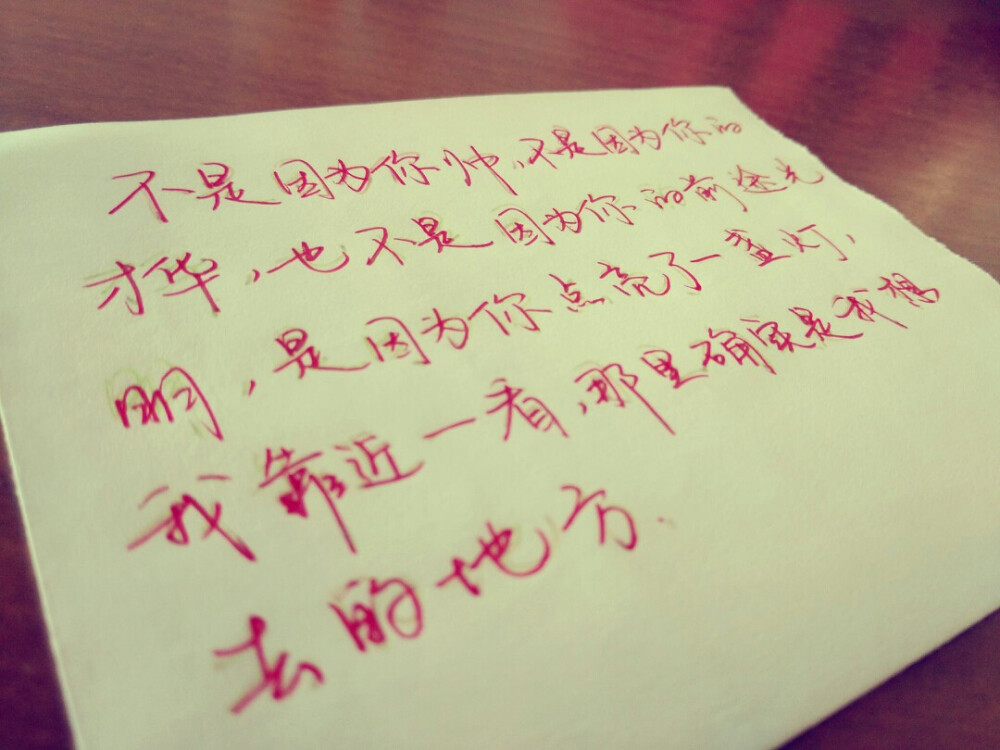 不是因为你帅,不是因为你的
才华,也不是因为你的前途光
明,是因为你点亮了一盏灯,
我靠近一看,那里确实是我想
去的地方.